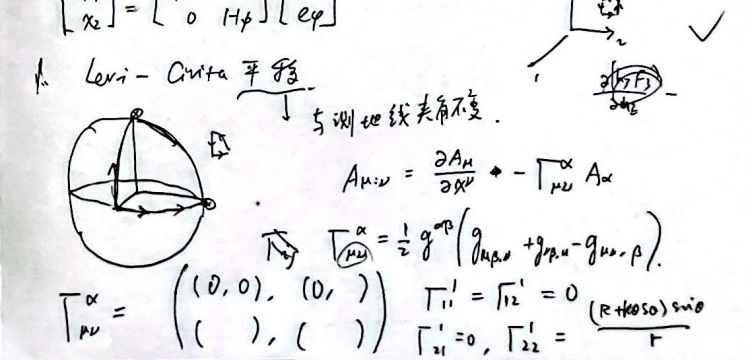 [x₂] = [0 Hφ] [eφ]
2
1
Levi - Civita 平移
与测地线夹角不变.
A_{μ;ν} = ∂A_μ/∂x^ν - Γ^α_{μν} A_α
Γ^α_{μν} = 1/2 g^{αβ} (g_{μβ,ν} + g_{νβ,μ} - g_{μν,β}).
Γ^α_{μν} = ((0,0), (0, ) ( ), ( ))
Γ^1_{11} = Γ^1_{12} = 0
Γ^1_{21} = 0, Γ^1_{22} = (R+rcosθ) sinθ / r